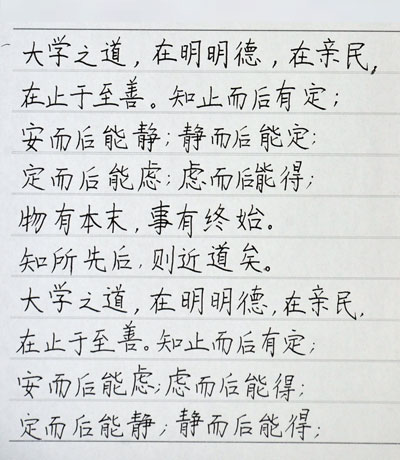 大学之道，在明明德，在亲民，
在止于至善。知止而后有定；
安而后能静；静而后能定；
定而后能虑；虑而后能得；
物有本末，事有终始。
知所先后，则近道矣。
大学之道，在明明德，在亲民，
在止于至善。知止而后有定；
安而后能虑；虑而后能得；
定而后能静；静而后能得；